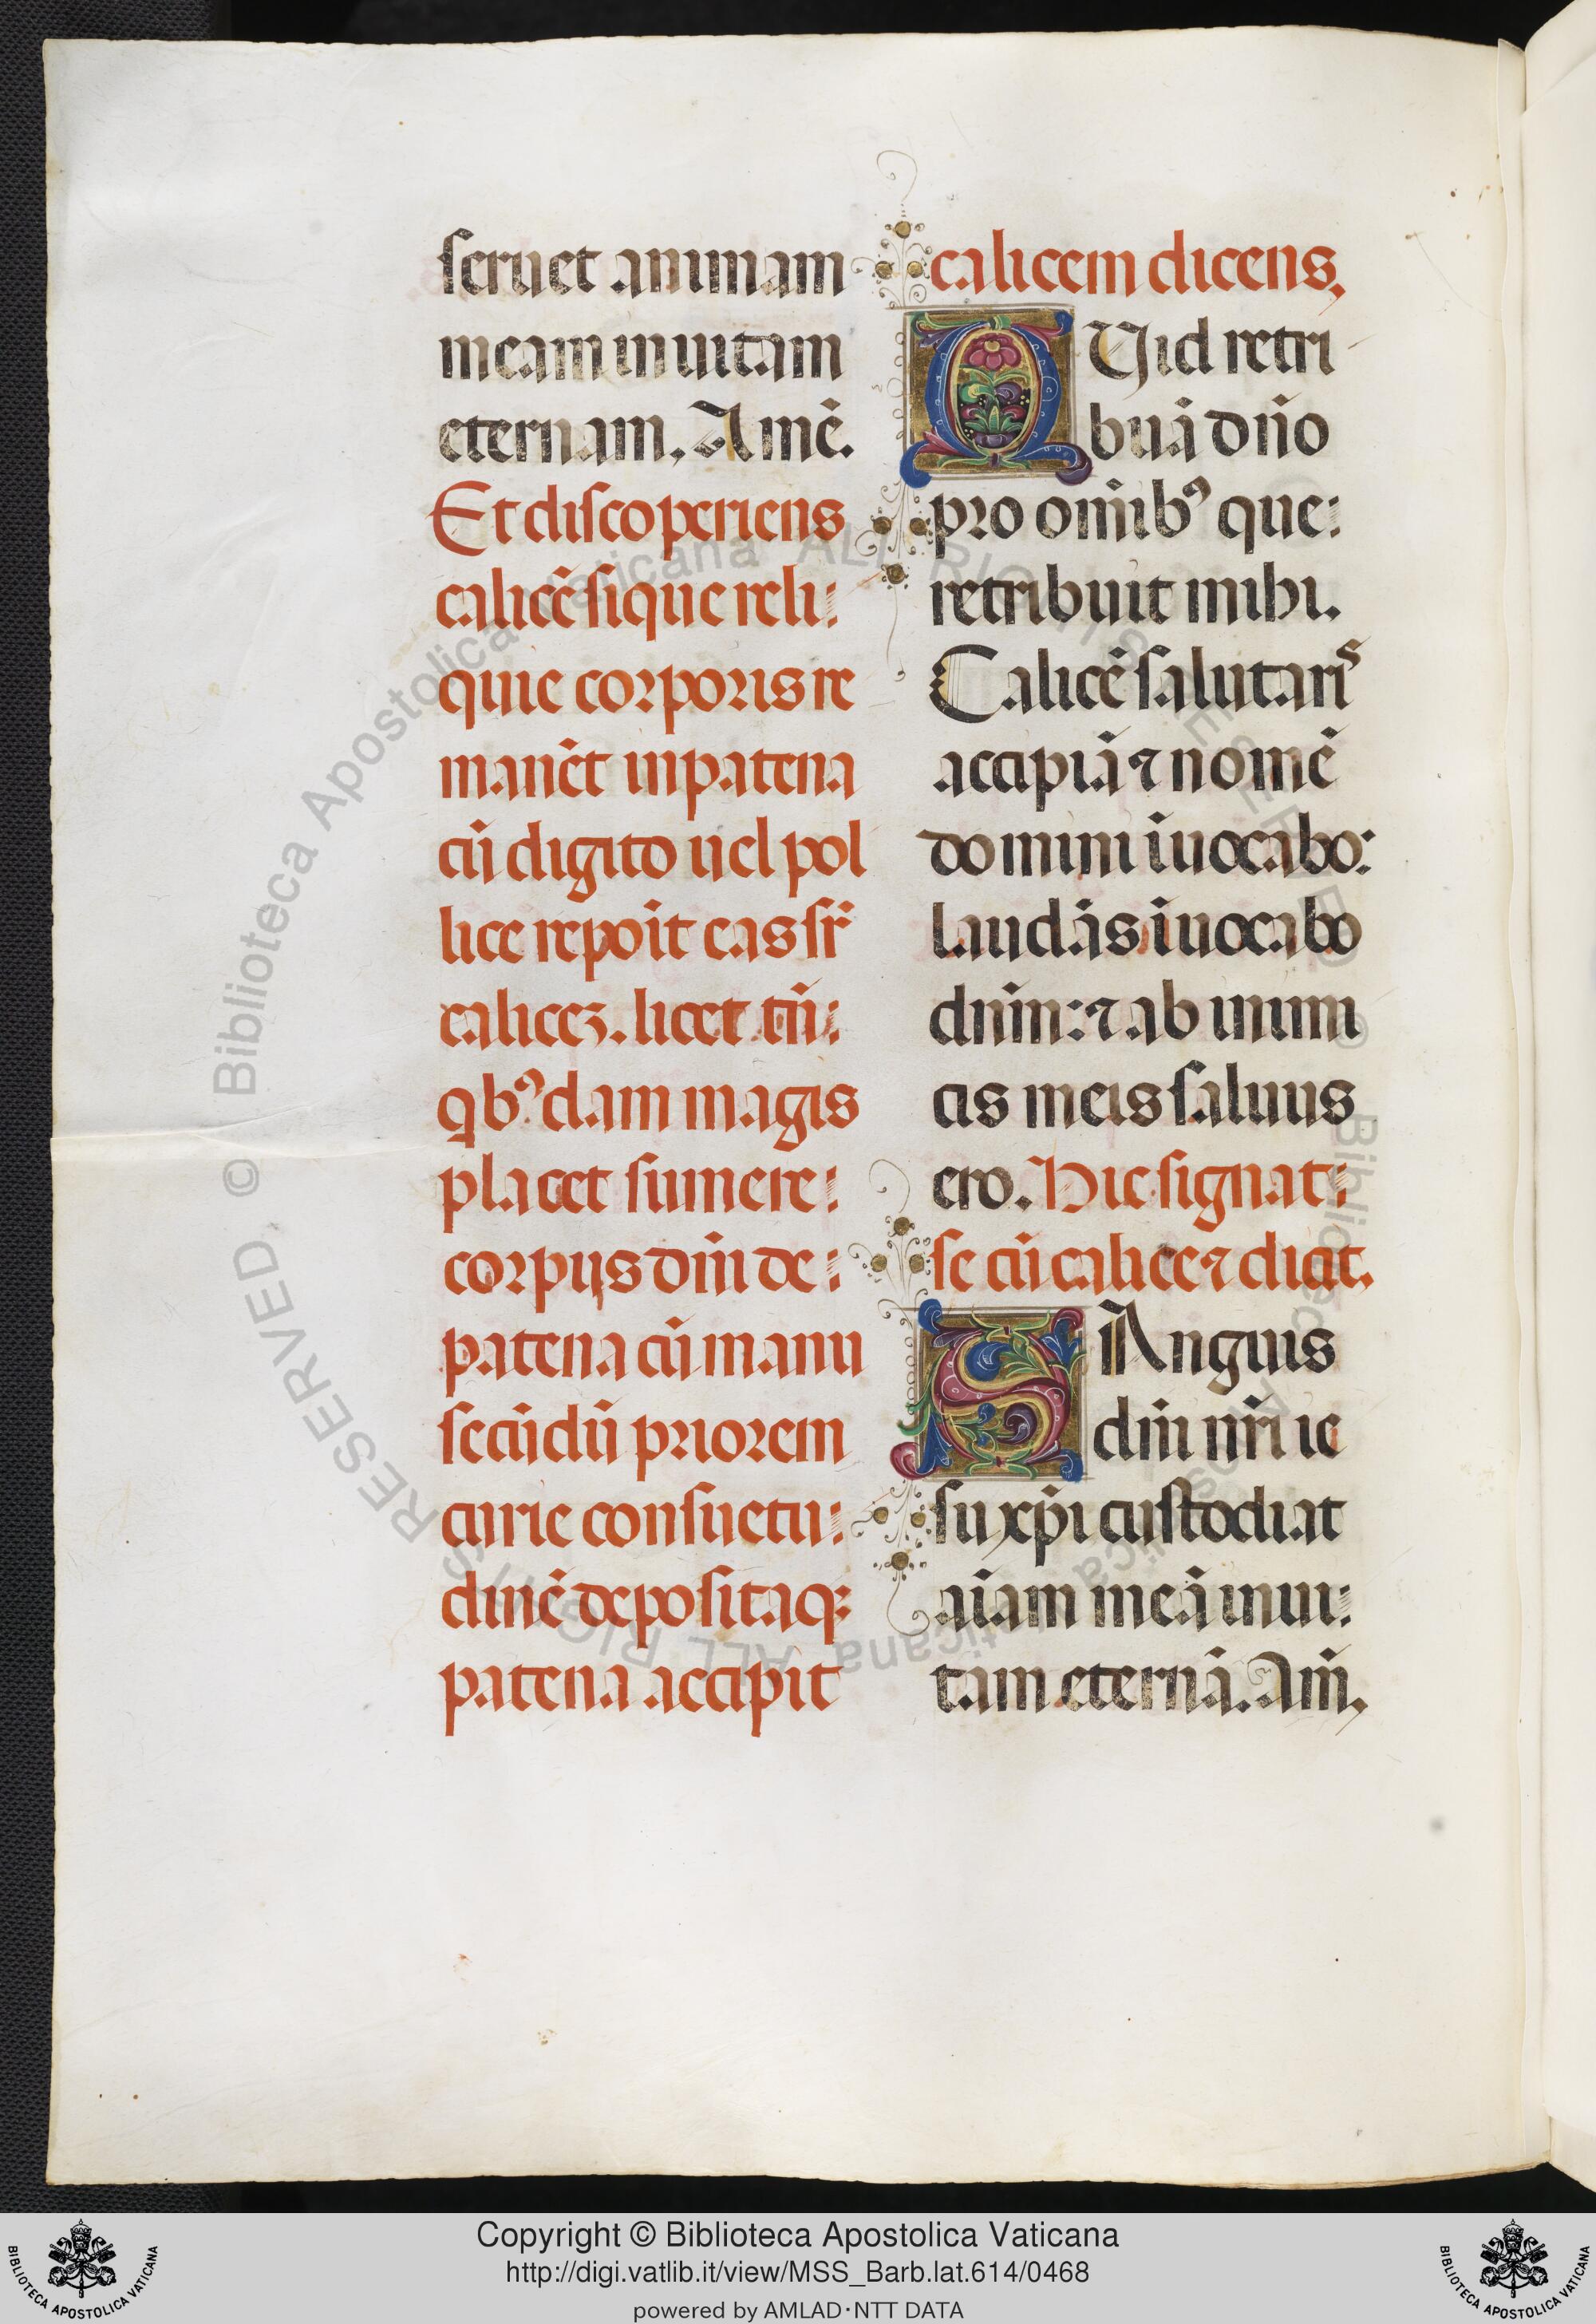 seruet animam
meam in uitam
eternam. Amē.
Et discoperiens
calicē si que reli:
quie corporis re
manēt in patena
cū digito uel pol
lice repoīt eas sr̄
calicez. licet tn̄:
qbꝰdam magis
placet sumere:
corpus dn̄i de:
patena cū manu
secūdū priorem
curie consuetu:
dinē depositaqꝫ
patena accipit
calicem dicens,
QUid retri
buā dn̄o
pro om̄ibꝰ que:
retribuit mihi.
Calicē salutarıˢ
accipiā ⁊ nomē
domini īuocabo:
laudās īuocabo
dn̄m: ⁊ ab inimi
cis meis saluus
ero. Hic signat:
se cū calice ⁊ dicit.
SAnguis
dn̄i nr̄i ie
su xp̄i custodiat
aīam meā in ui:
tam eternā. Am̄.
© Biblioteca Apostolica Vaticana ALL RIGHTS RESERVED. © Biblioteca Apostolica Vaticana ALL RIGHTS RESERVED.
Copyright © Biblioteca Apostolica Vaticana
http://digi.vatlib.it/view/MSS_Barb.lat.614/0468
powered by AMLAD·NTT DATA
BIBLIOTECA APOSTOLICA VATICANA
BIBLIOTECA APOSTOLICA VATICANA